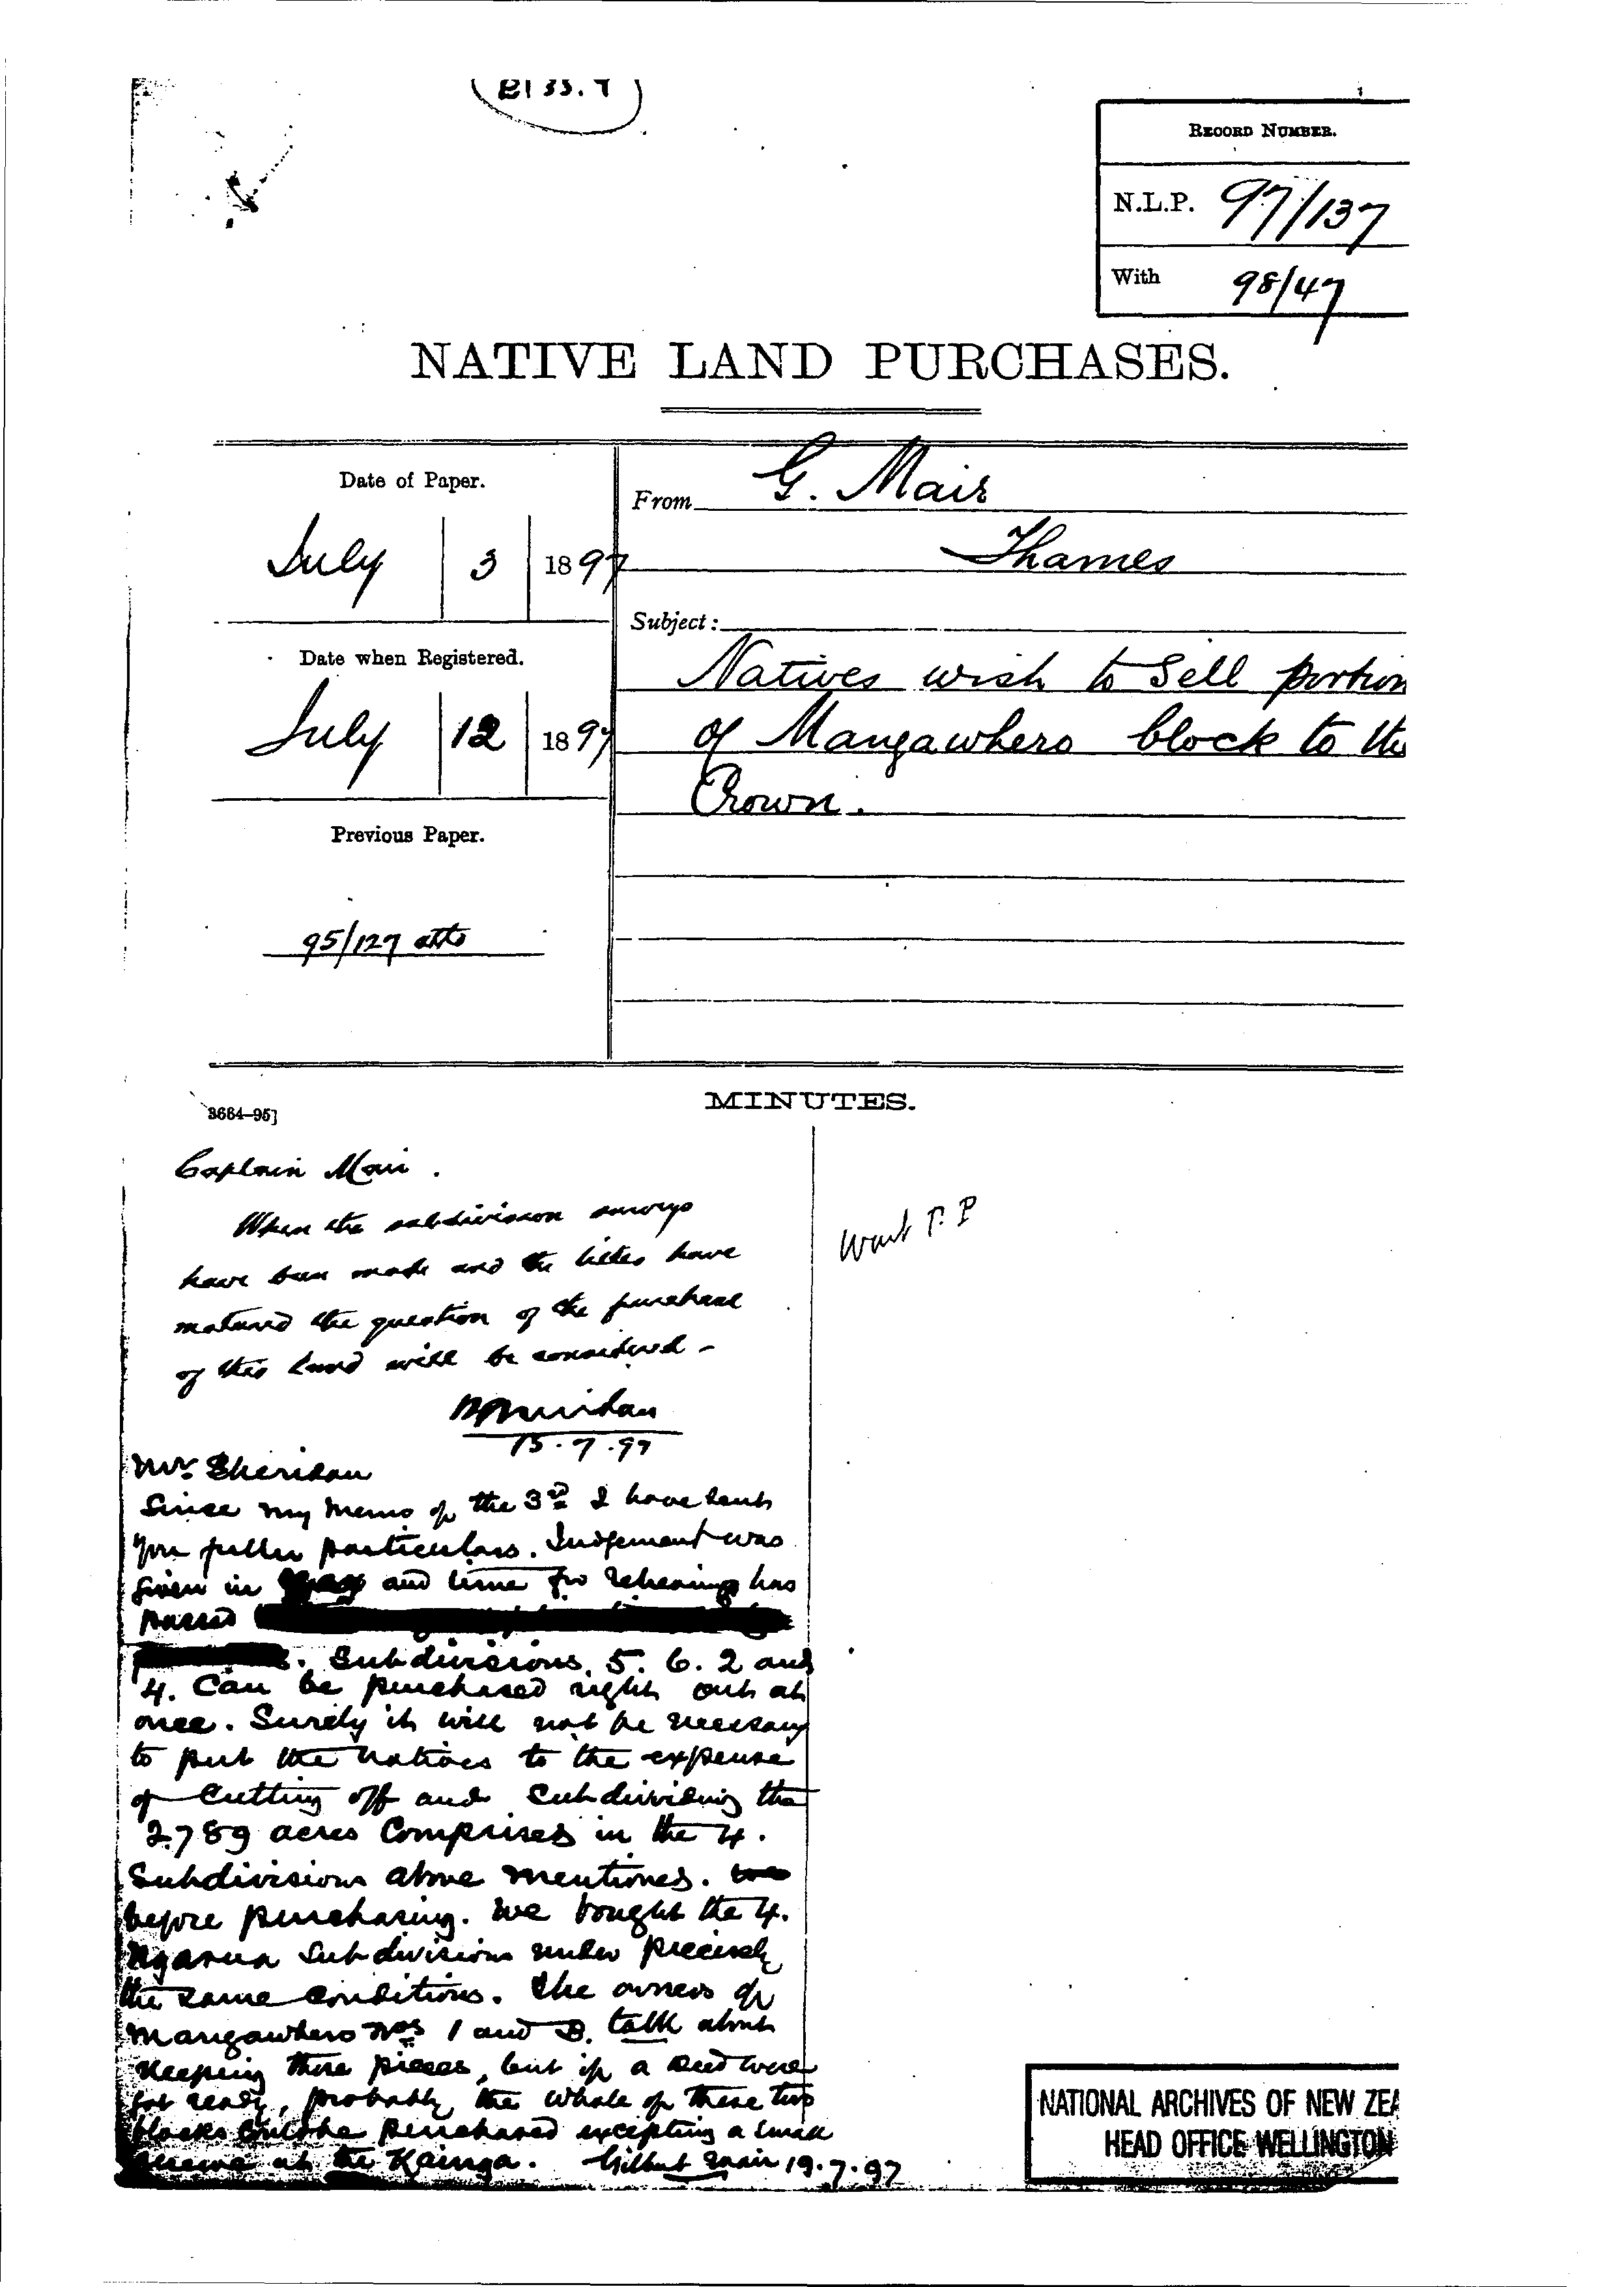 B133.7
RECORD NUMBER.
N.L.P. 97/137
With 98/47
NATIVE LAND PURCHASES.
Date of Paper.
July 3 1897
Date when Registered.
July 12 1897
Previous Paper.
95/127 atto
From G. Mair
Thames
Subject:
Natives wish to Sell portion
of Mangawhero block to the
Crown.
3664–95]
MINUTES.
Captain Mair.
When the subdivision surveys
have been made and the titles have
matured the question of the purchase
of this land will be considered –
15.7.97
Want P.P
Mr. Sheridan
Since my memo of the 3rd I have sent
you fuller particulars. Judgement was
given in and time for rehearing has
passed
. Subdivisions. 5. 6. 2 and
4. Can be purchased right out at
once. Surely it will not be necessary
to put the natives to the expense
of cutting off and Subdividing the
2789 acres Comprised in the 4.
Subdivisions above mentioned.
before purchasing. We bought the 4.
Ngarua Subdivisions under precisely
the same conditions. The owners of
Mangawhero Nos 1 and 3. talk about
keeping these pieces, but if a Deed were
got ready, probably the whole of these two
blocks could be purchased excepting a small
reserve at the Kainga. Gilbert Mair 19.7.97
NATIONAL ARCHIVES OF NEW ZEA
HEAD OFFICE WELLINGTON